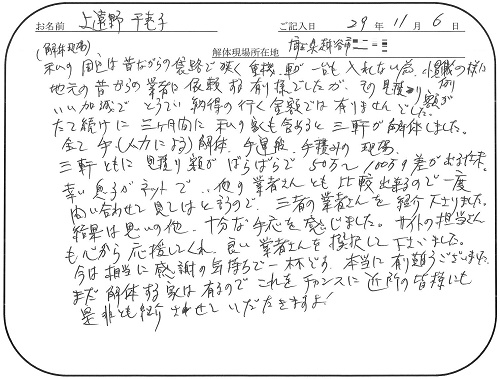 お名前 上遠野 千恵子 ご記入日 29年 11月 6日
(解体現場) 解体現場所在地 埼玉県越谷市
私の周囲は昔ながらの袋路で狭く重機、車が一台も入れない為、小難の様に
地元の昔からの業者に依頼する有様でしたが その見積り額が
いい加減で とうてい納得の行く金額では有りませんでした。
たて続けに 三ヶ月間に 私の家も含めると 三軒が解体しました。
全て 手(人力による)解体、手運搬、手積みの現場、
三軒ともに見積り額がばらばらで 50万〜100万の差が出る仕末。
幸い息子がネットで 他の業者さんとも比較出来るので一度
問い合わせて見てはと言うので、三者の業者さんを紹介下さりました。
結果は思いの他、十分な手応を感じました。サイトの担当さん
も心から応援してくれ、良い業者さんを選択して下さいました。
今は相当に感謝の気持ちで一杯どす。本当に有難うございました。
まだ解体する家は有るので これをチャンスに 近所の皆様にも
是非とも紹介させていただきますよ!